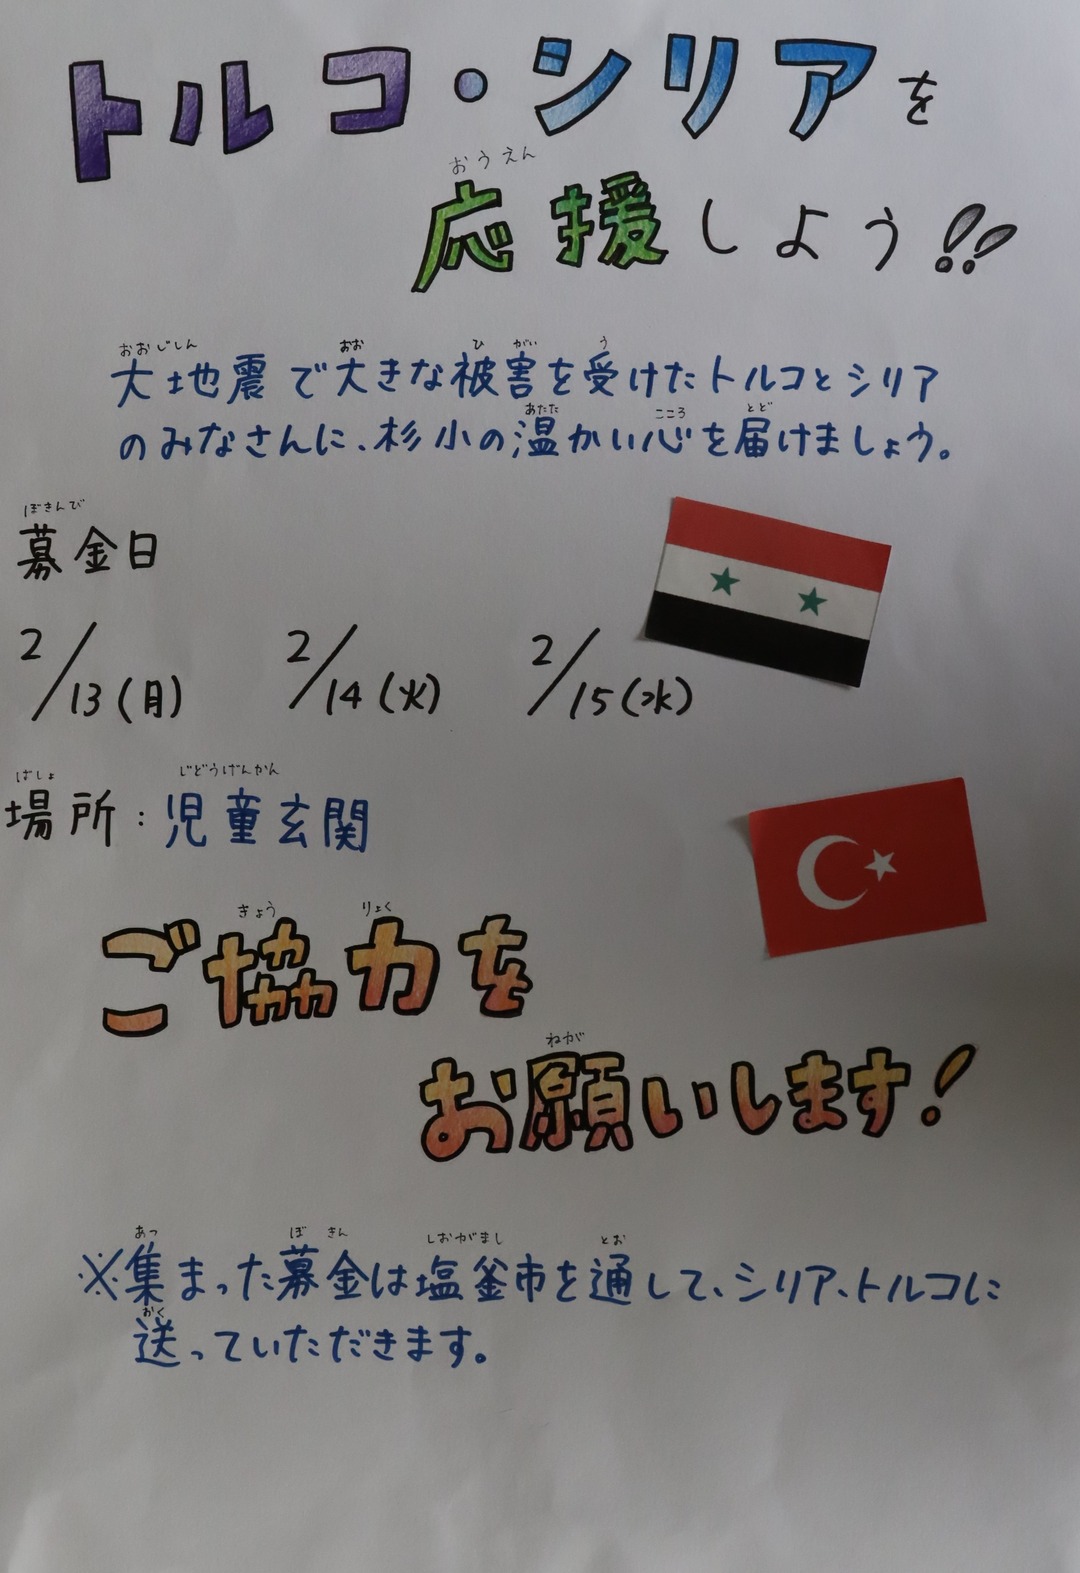 トルコ・シリアを
おうえん
応援しよう!!
おおじしん おお ひ がい う
大地震で大きな被害を受けたトルコとシリア
あたた こころ とど
のみなさんに、杉小の温かい心を届けましょう。
ぼきんび
募金日
2/13(月) 2/14(火) 2/15(水)
ばしょ じどうげんかん
場所:児童玄関
きょう りょく
ご協力を
ねが
お願いします!
あつ ぼ きん しおがまし とお
※集まった募金は塩釜市を通して、シリア、トルコに
おく
送っていただきます。